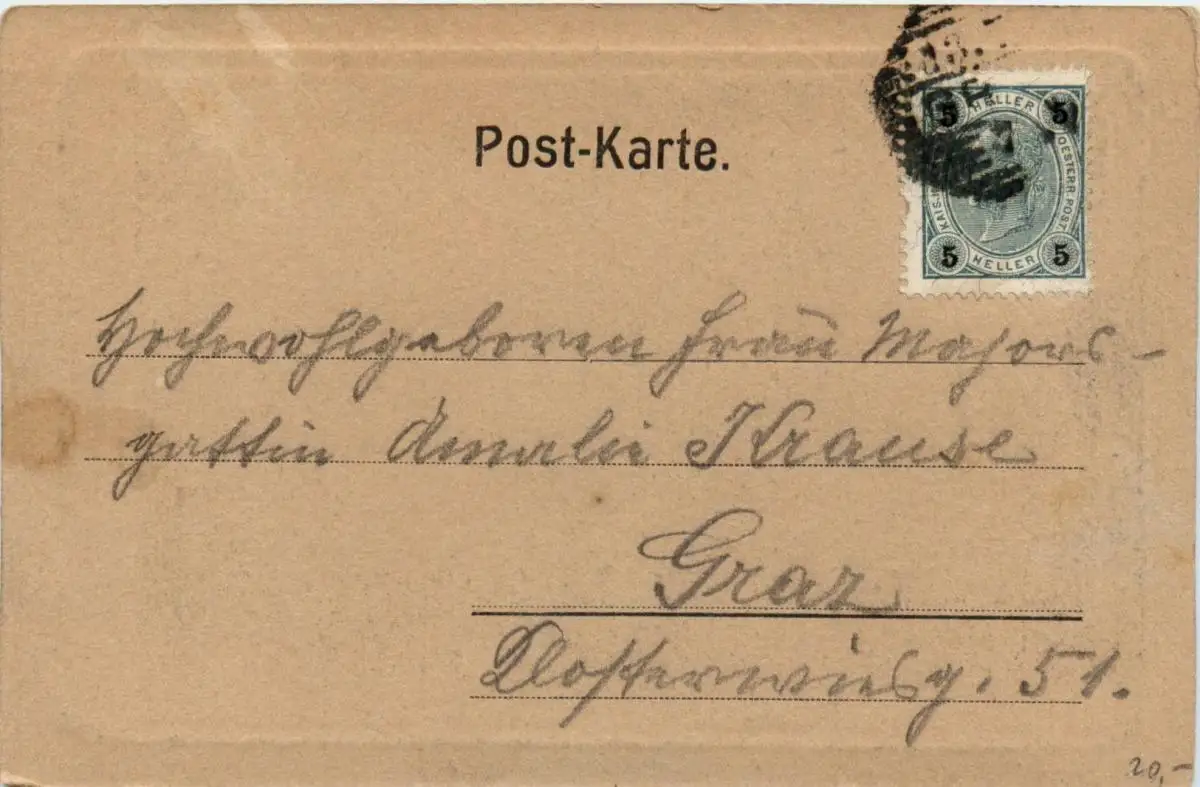 Post-Karte.
5 HELLER 5
KAIS. OESTERR. POST
5 HELLER 5
Hochwohlgeboren Frau Majors-
gattin Amalie Krause
Graz
Klosterwiesg. 51.
20,-